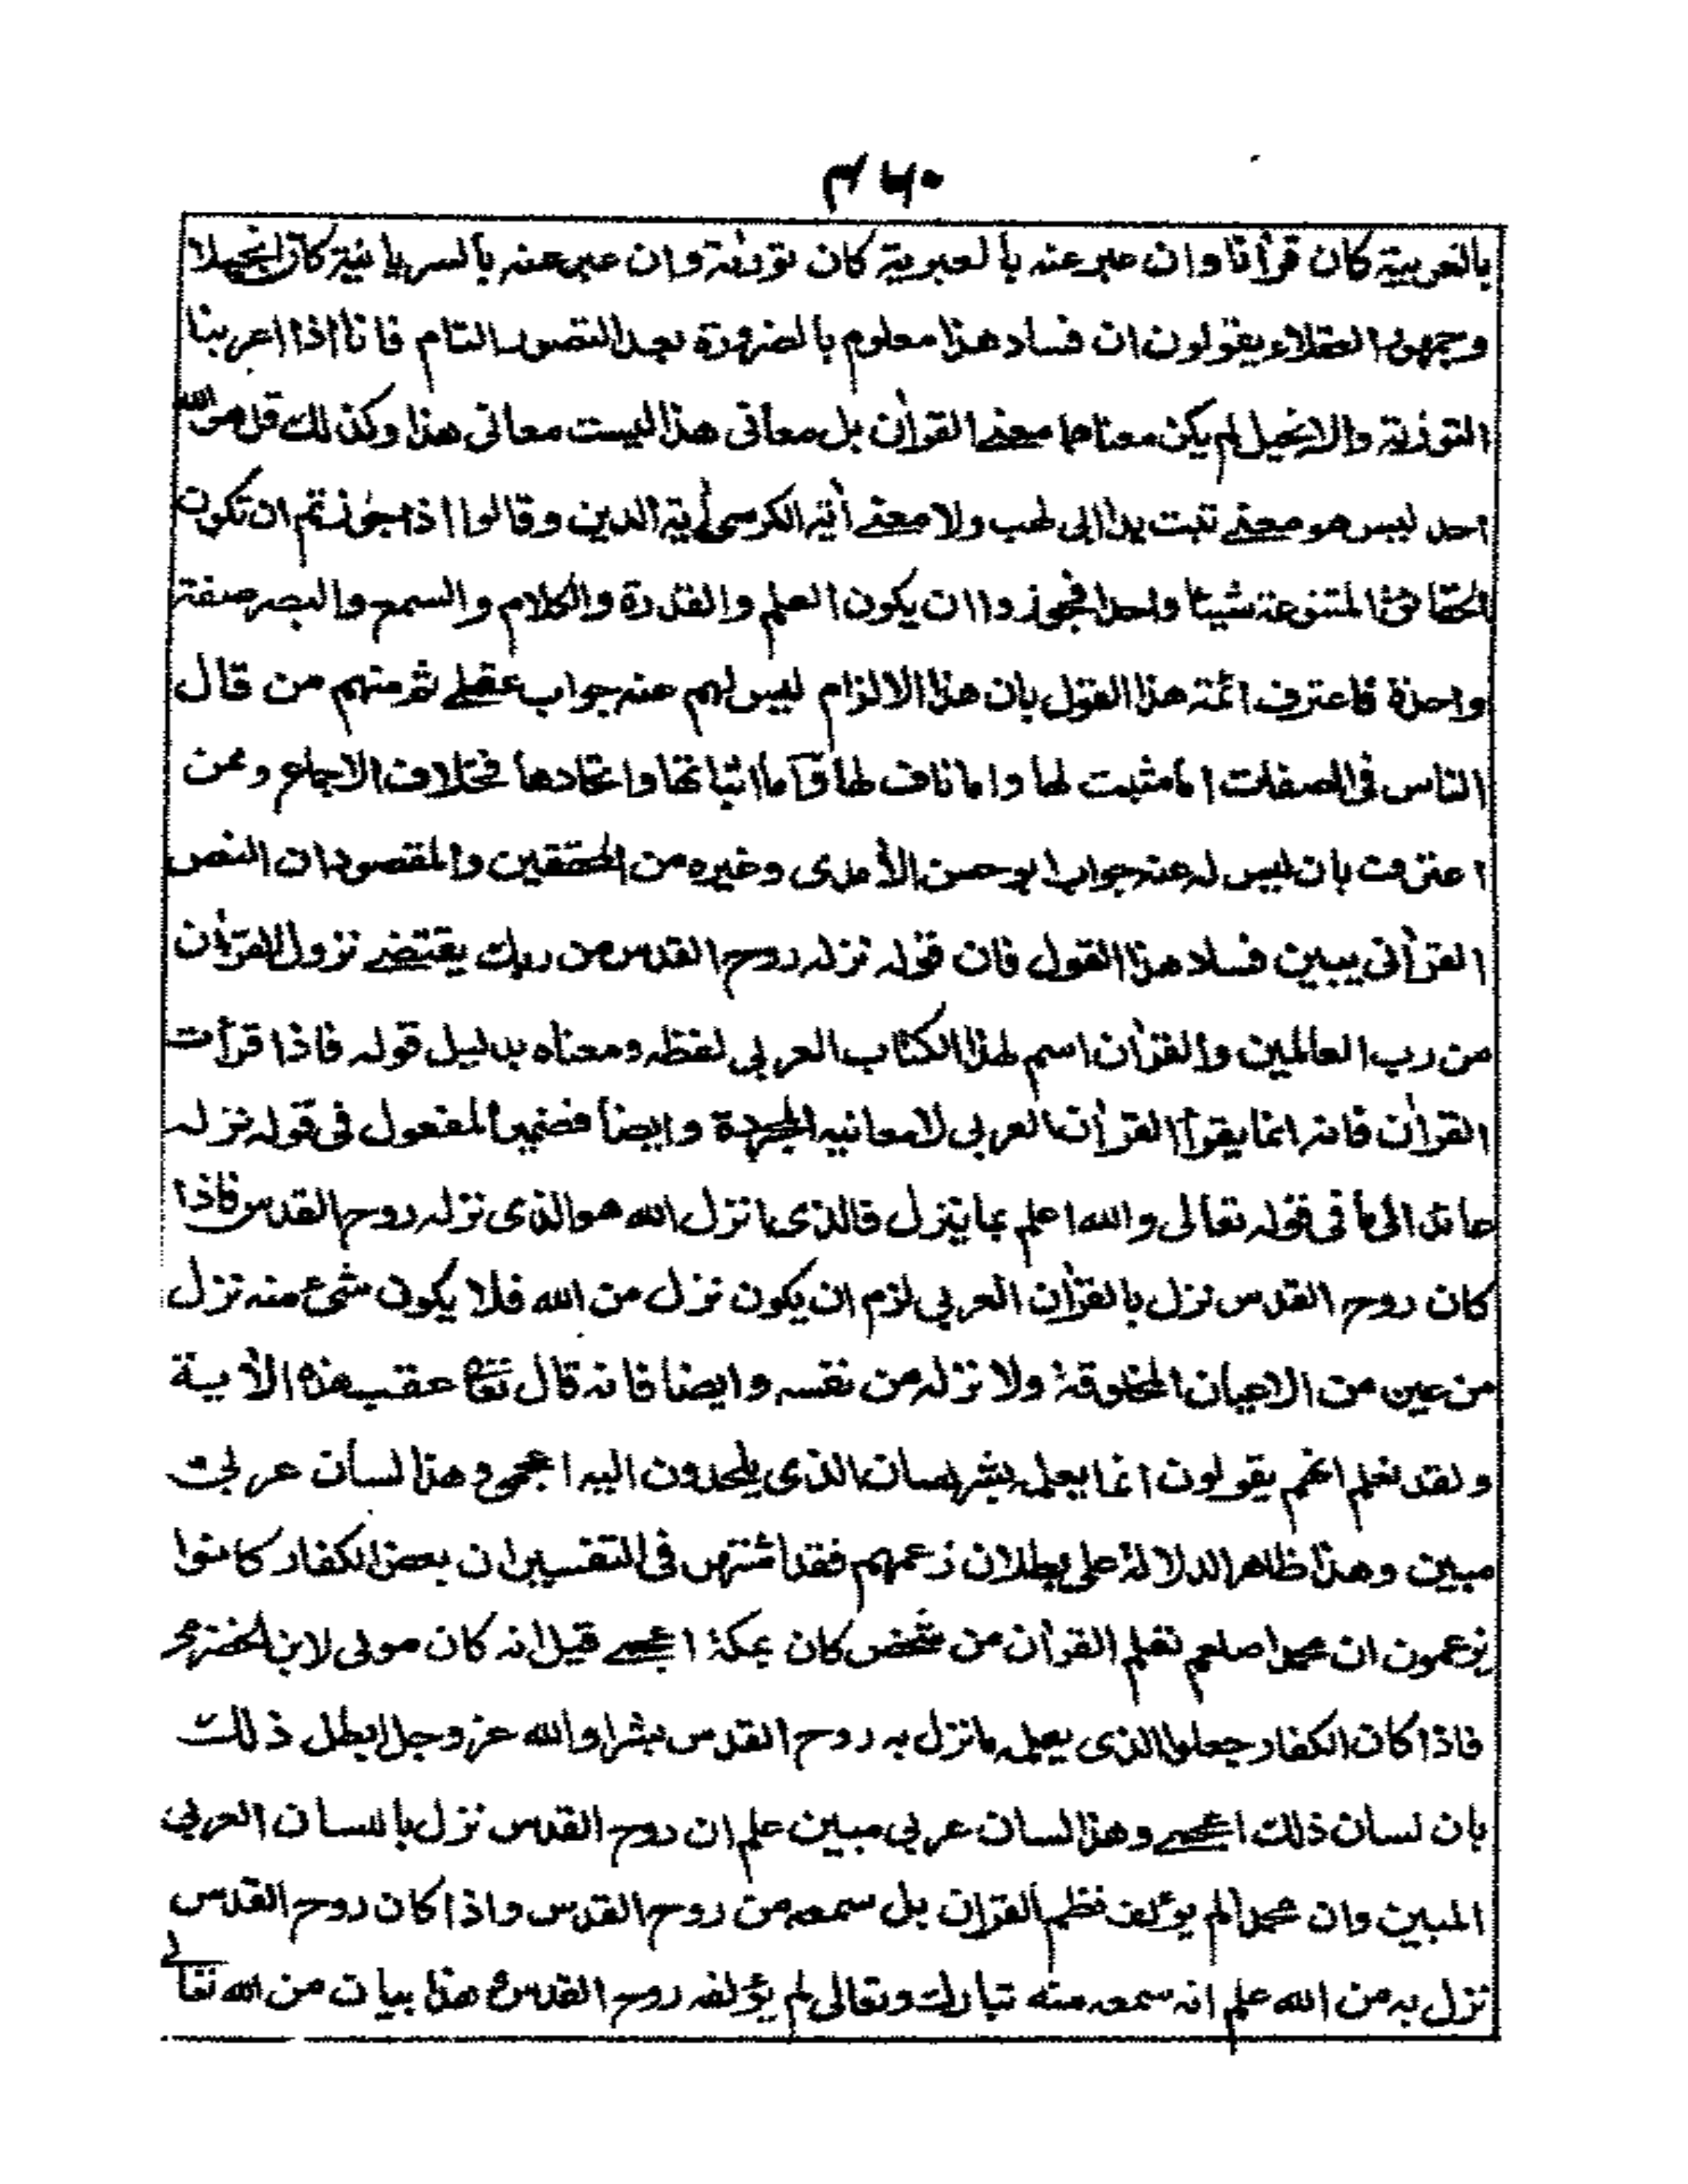 ٣٦٠
بالعربية كان قرأنا وان عبر عنه بالعبرية كان تورٰىة وان عبر عنه بالسريانية كان انجيلا
وجمهور العقلاء يقولون ان فساد هذا معلوم بالضرورة بعد التصور التام فانا اذا عربنا
التورٰىة والانجيل لم يكن معناهما معنى القراٰن بل معانى هذا ليست معانى هذا وكذلك قل هو الله
احد ليس هو معنى تبت يدا ابى لهب ولا معنى أية الكرسى أية الدين وقالوا اذا جوزتم ان تكون
الحقائق المتنوعة شيئا واحدا فجوزوا ان يكون العلم والقدرة والكلام والسمع والبصر صفة
واحدة فاعترف ائمة هذا القول بان هذا الالزام ليس لهم عنه جواب عقلى ثم منهم من قال
الناس فى الصفات اما مثبت لها واما ناف لها واما اثباتها واتحادها فخلاف الاجماع وممن
اعترف بان ليس له عنه جواب ابو حسن الأمدى وغيره من المحققين والمقصود ان النص
القرأنى يبين فساد هذا القول فان قوله نزله روح القدس من ربك يقتضى نزول القرأن
من رب العالمين والقرأن اسم لهذا الكتاب العربى لفظه ومعناه بدليل قوله فاذا قرأت
القرأن فانه انما يقرأ القرأن العربى لا معانيه المجردة وايضا فضمير المفعول فى قوله نزله
عائد الى ما فى قوله تعالى والله اعلم بما ينزل فالذى انزل الله هو الذى نزله روح القدس فاذا
كان روح القدس نزل بالقرأن العربى لزم ان يكون نزل من الله فلا يكون شئ منه نزل
من عين من الاعيان المخلوقة ولا نزله من نفسه وايضا فانه قال تعا عقب هذه الأية
ولقد نعلم انهم يقولون انما يعلمه بشر لسان الذى يلحدون اليه اعجمى وهذا لسان عربى
مبين وهذا ظاهر الدلالة على بطلان زعمهم فقد اشتهر فى التفسير ان بعض الكفار كانوا
يزعمون ان محمدا صلعم تعلم القرأن من شخص كان بمكة اعجمى قيل انه كان مولى لابن الحضرمى
فاذا كان الكفار جعلوا الذى يعلمه ما نزل به روح القدس بشرا والله عز وجل ابطل ذلك
بان لسان ذلك اعجمى وهذا لسان عربى مبين علم ان روح القدس نزل باللسان العربى
المبين وان محمدا لم يؤلف نظم القرأن بل سمعه من روح القدس واذا كان روح القدس
نزل به من الله علم انه سمعه منه تبارك وتعالى لم يؤلفه روح القدس وهذا بيان من الله تعالى